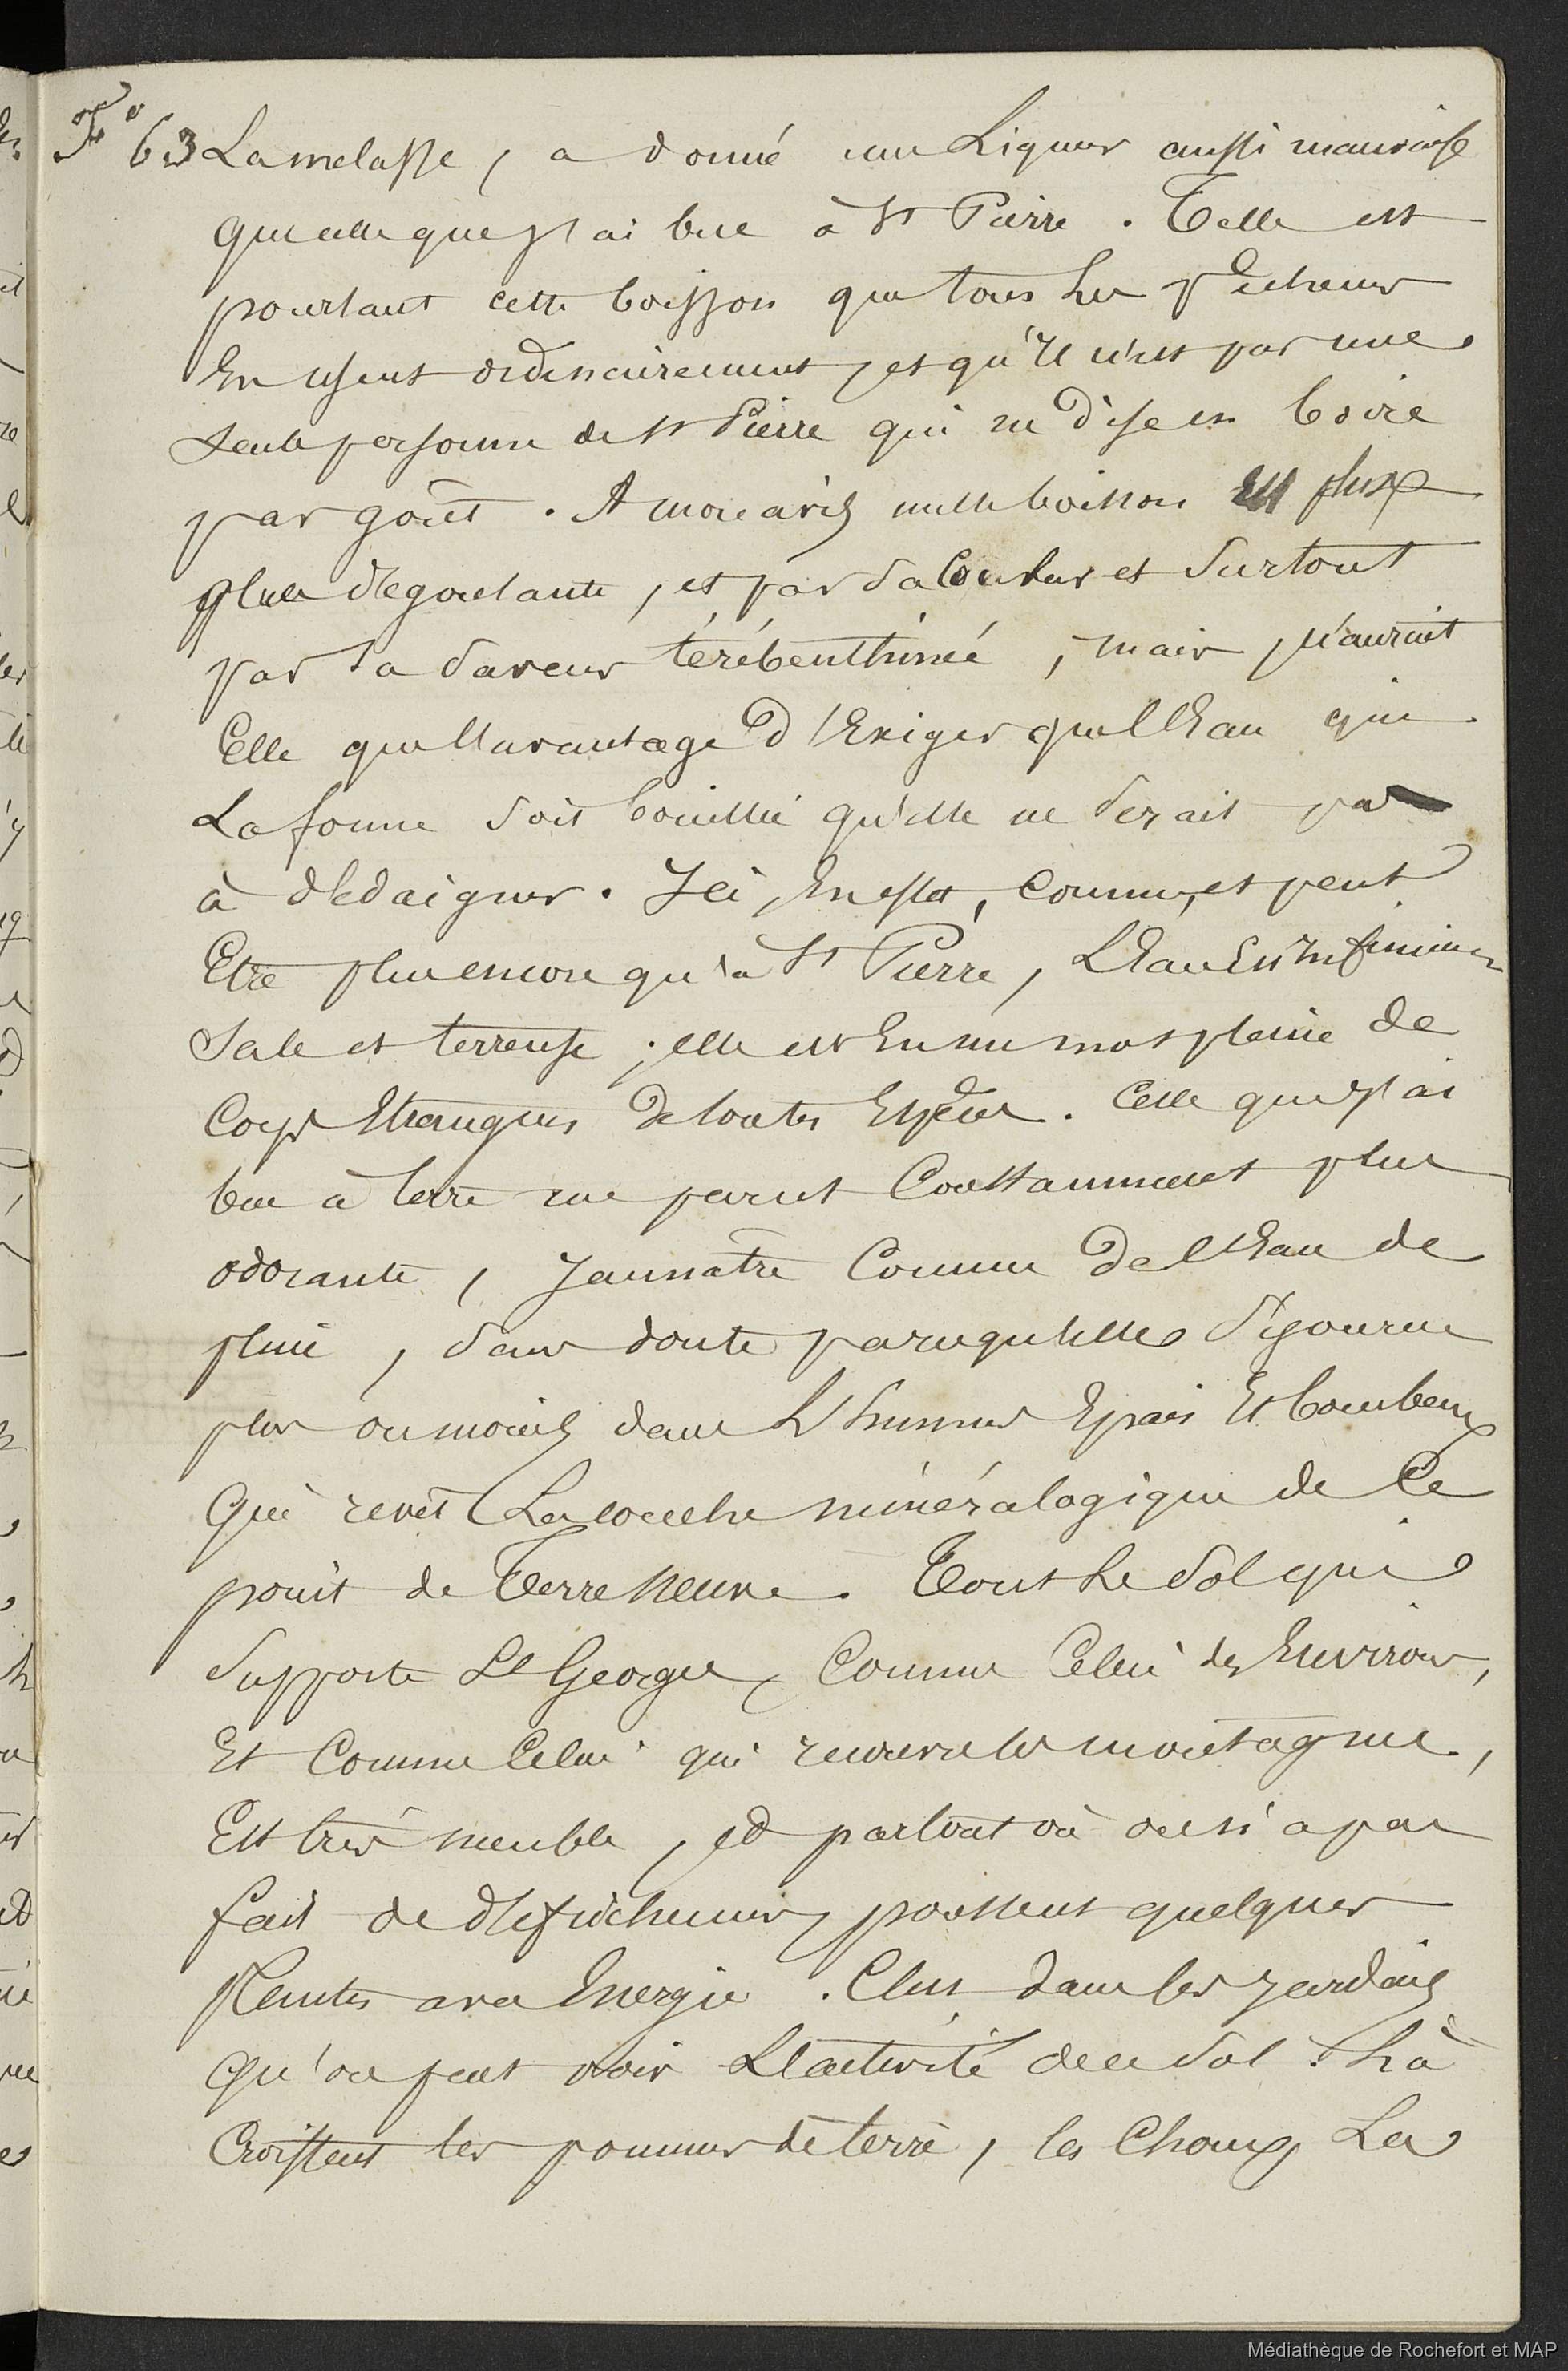 F° 63 La melasse, a donné une Liqueur aussi mauvaise
Que celle que j'ai bue à St Pierre. Telle est
pourtant cette boisson que tous les pêcheurs
En usent ordinairement, et qu'il n'est pas une
seule personne de St Pierre qui ne dise en boire
par goût. A mon avis nulle boisson est plus
plus dégoutante, et par sa Couleur et Surtout
par sa Saveur térébenthinée, mais, n'aurait
Elle que l'avantage d'Exiger que l'Eau qui
La forme soit bouillie qu'elle ne serait pas
à dédaigner. Ici, En effet, Comme, et peut
Etre plus encore qu'à St Pierre, L'Eau Est Infiniment
Sale et terreuse; elle est En un mot pleine de
Corps Etrangers De toutes Espèces. Celle que j'ai
bue à terre me parut Constamment plus
odorante, Jaunâtre Comme De l'Eau de
pluie, sans doute parcequ'elle Séjourne
plus ou moins dans L'humus Epais Et bourbeux
Qui revêt La couche minéralogique de Ce
point de Terre Neuve. Tout Le Sol qui
Supporte St Georges, Comme Celui des Environs,
Et Comme Celui qui recouvre les montagnes,
Est très meuble, et partout où on n'a pas
fait de défrichements, poussent quelques
Plantes avec Energie. C'est dans les jardins
Qu'on peut voir L'activité de ce Sol. Là
Croissent les pommes de terre, les Choux, La
Médiathèque de Rochefort et MAP